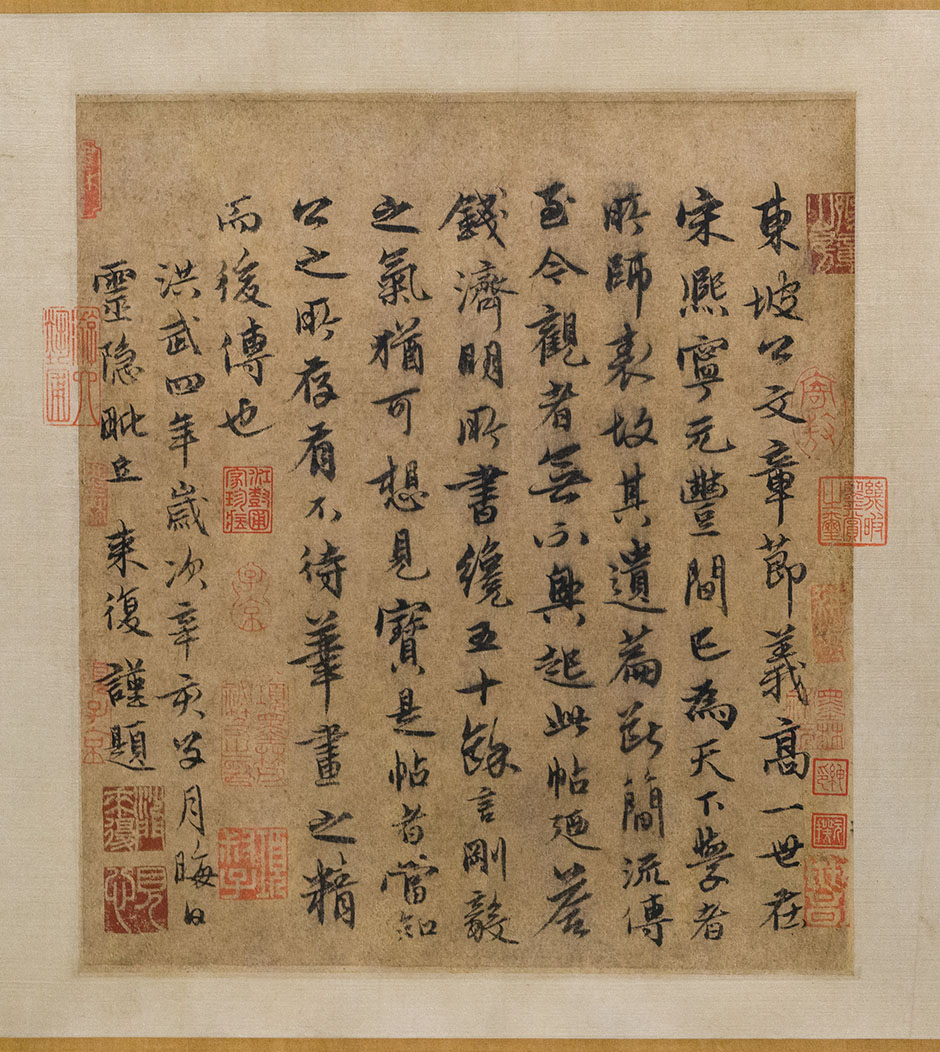 東坡公文章節義高一世在
宋熙寧元豐間已為天下學者
所師表故其遺篇斷簡流傳
至今觀者無不興起此帖廼答
錢濟明所書纔五十餘言剛毅
之氣猶可想見寶是帖者當知
公之所存有不待筆畫之精
而後傳也
洪武四年歲次辛亥月晦日
靈隱毗丘來復謹題